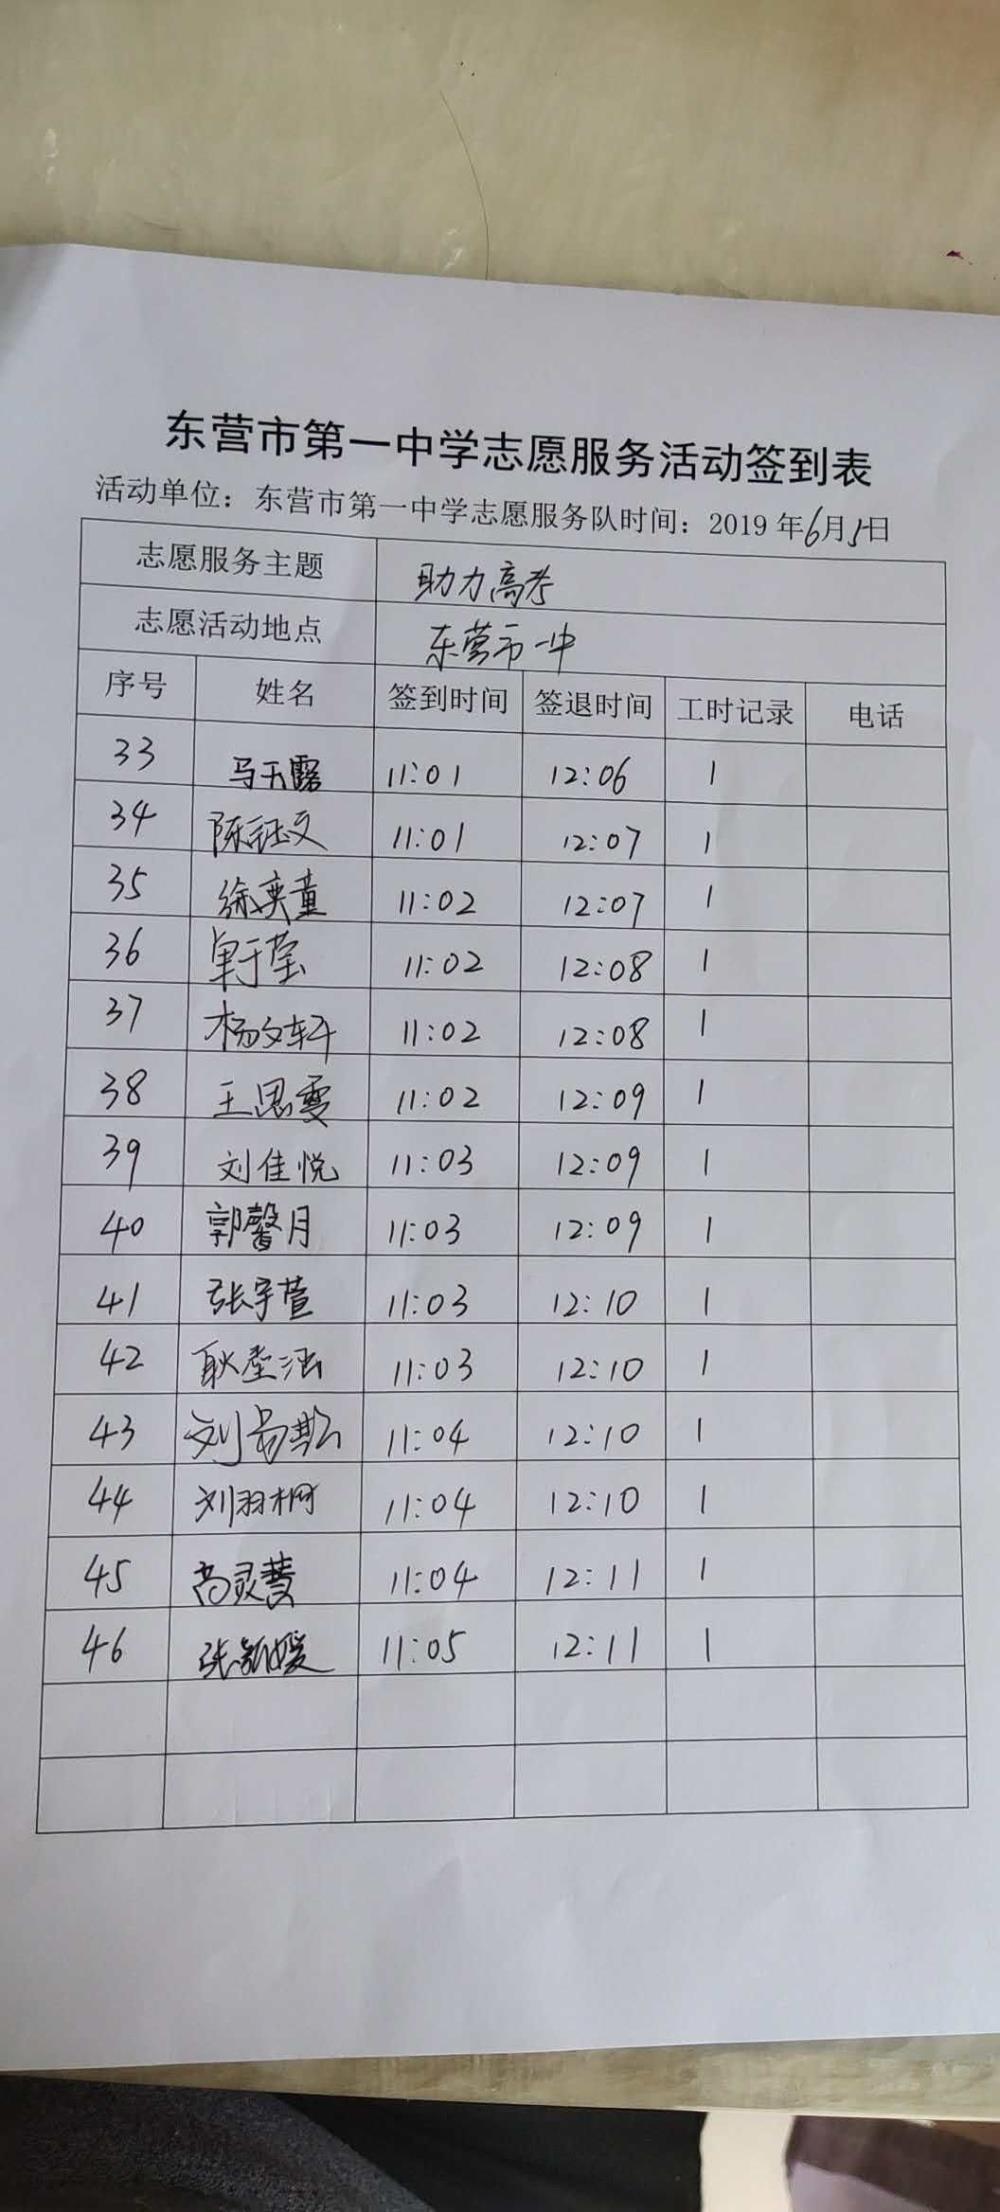 东营市第一中学志愿服务活动签到表
活动单位：东营市第一中学志愿服务队时间：2019年6月5日
志愿服务主题 助力高考
志愿活动地点 东营市一中
序号 姓名 签到时间 签退时间 工时记录 电话
33 马天露 11:01 12:06 1
34 陈钰文 11:01 12:07 1
35 徐奕童 11:02 12:07 1
36 单于莹 11:02 12:08 1
37 杨文轩 11:02 12:08 1
38 王思雯 11:02 12:09 1
39 刘佳悦 11:03 12:09 1
40 郭馨月 11:03 12:09 1
41 张宇萱 11:03 12:10 1
42 耿 涵 11:03 12:10 1
43 刘 11:04 12:10 1
44 刘羽桐 11:04 12:10 1
45 尚灵慧 11:04 12:11 1
46 张 媛 11:05 12:11 1